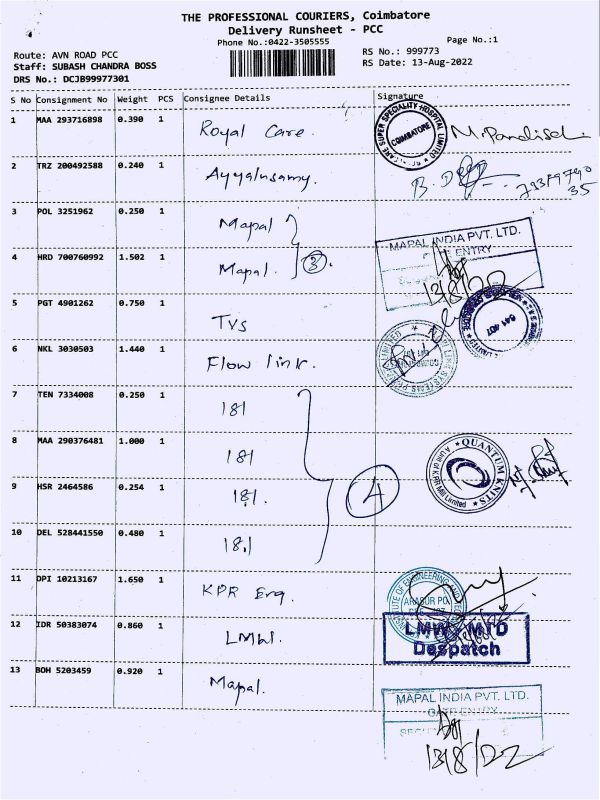 THE PROFESSIONAL COURIERS, Coimbatore
Delivery Runsheet - PCC
Phone No.:0422-3505555
Page No.:1
Route: AVN ROAD PCC
RS No.: 999773
Staff: SUBASH CHANDRA BOSS
RS Date: 13-Aug-2022
DRS No.: DCJB99977301
S No Consignment No Weight PCS Consignee Details Signature
1 MAA 293716898 0.390 1 Royal Care. COIMBATORE
2 TRZ 200492588 0.240 1 Ayyalusamy.
3 POL 3251962 0.250 1 Mapal
MAPAL INDIA PVT. LTD.
GATE ENTRY
4 HRD 700760992 1.502 1 Mapal. 3. 13/8/22
5 PGT 4901262 0.750 1 TVS 641 407
6 NKL 3030503 1.440 1 Flow link.
7 TEN 7334008 0.250 1 181
8 MAA 290376481 1.000 1 181 QUANTUM KNITS
A Unit of KPR Mill Limited
9 HSR 2464586 0.254 1 181. 4
10 DEL 528441550 0.480 1 181
11 OPI 10213167 1.650 1 KPR Eng. INSTITUTE OF ENGINEERING AND
ARASUR PO.
12 IDR 50383074 0.860 1 LMW. LMW MTD
Despatch
13 BOH 5203459 0.920 1 Mapal.
MAPAL INDIA PVT. LTD.
GATE ENTRY
13/8/22